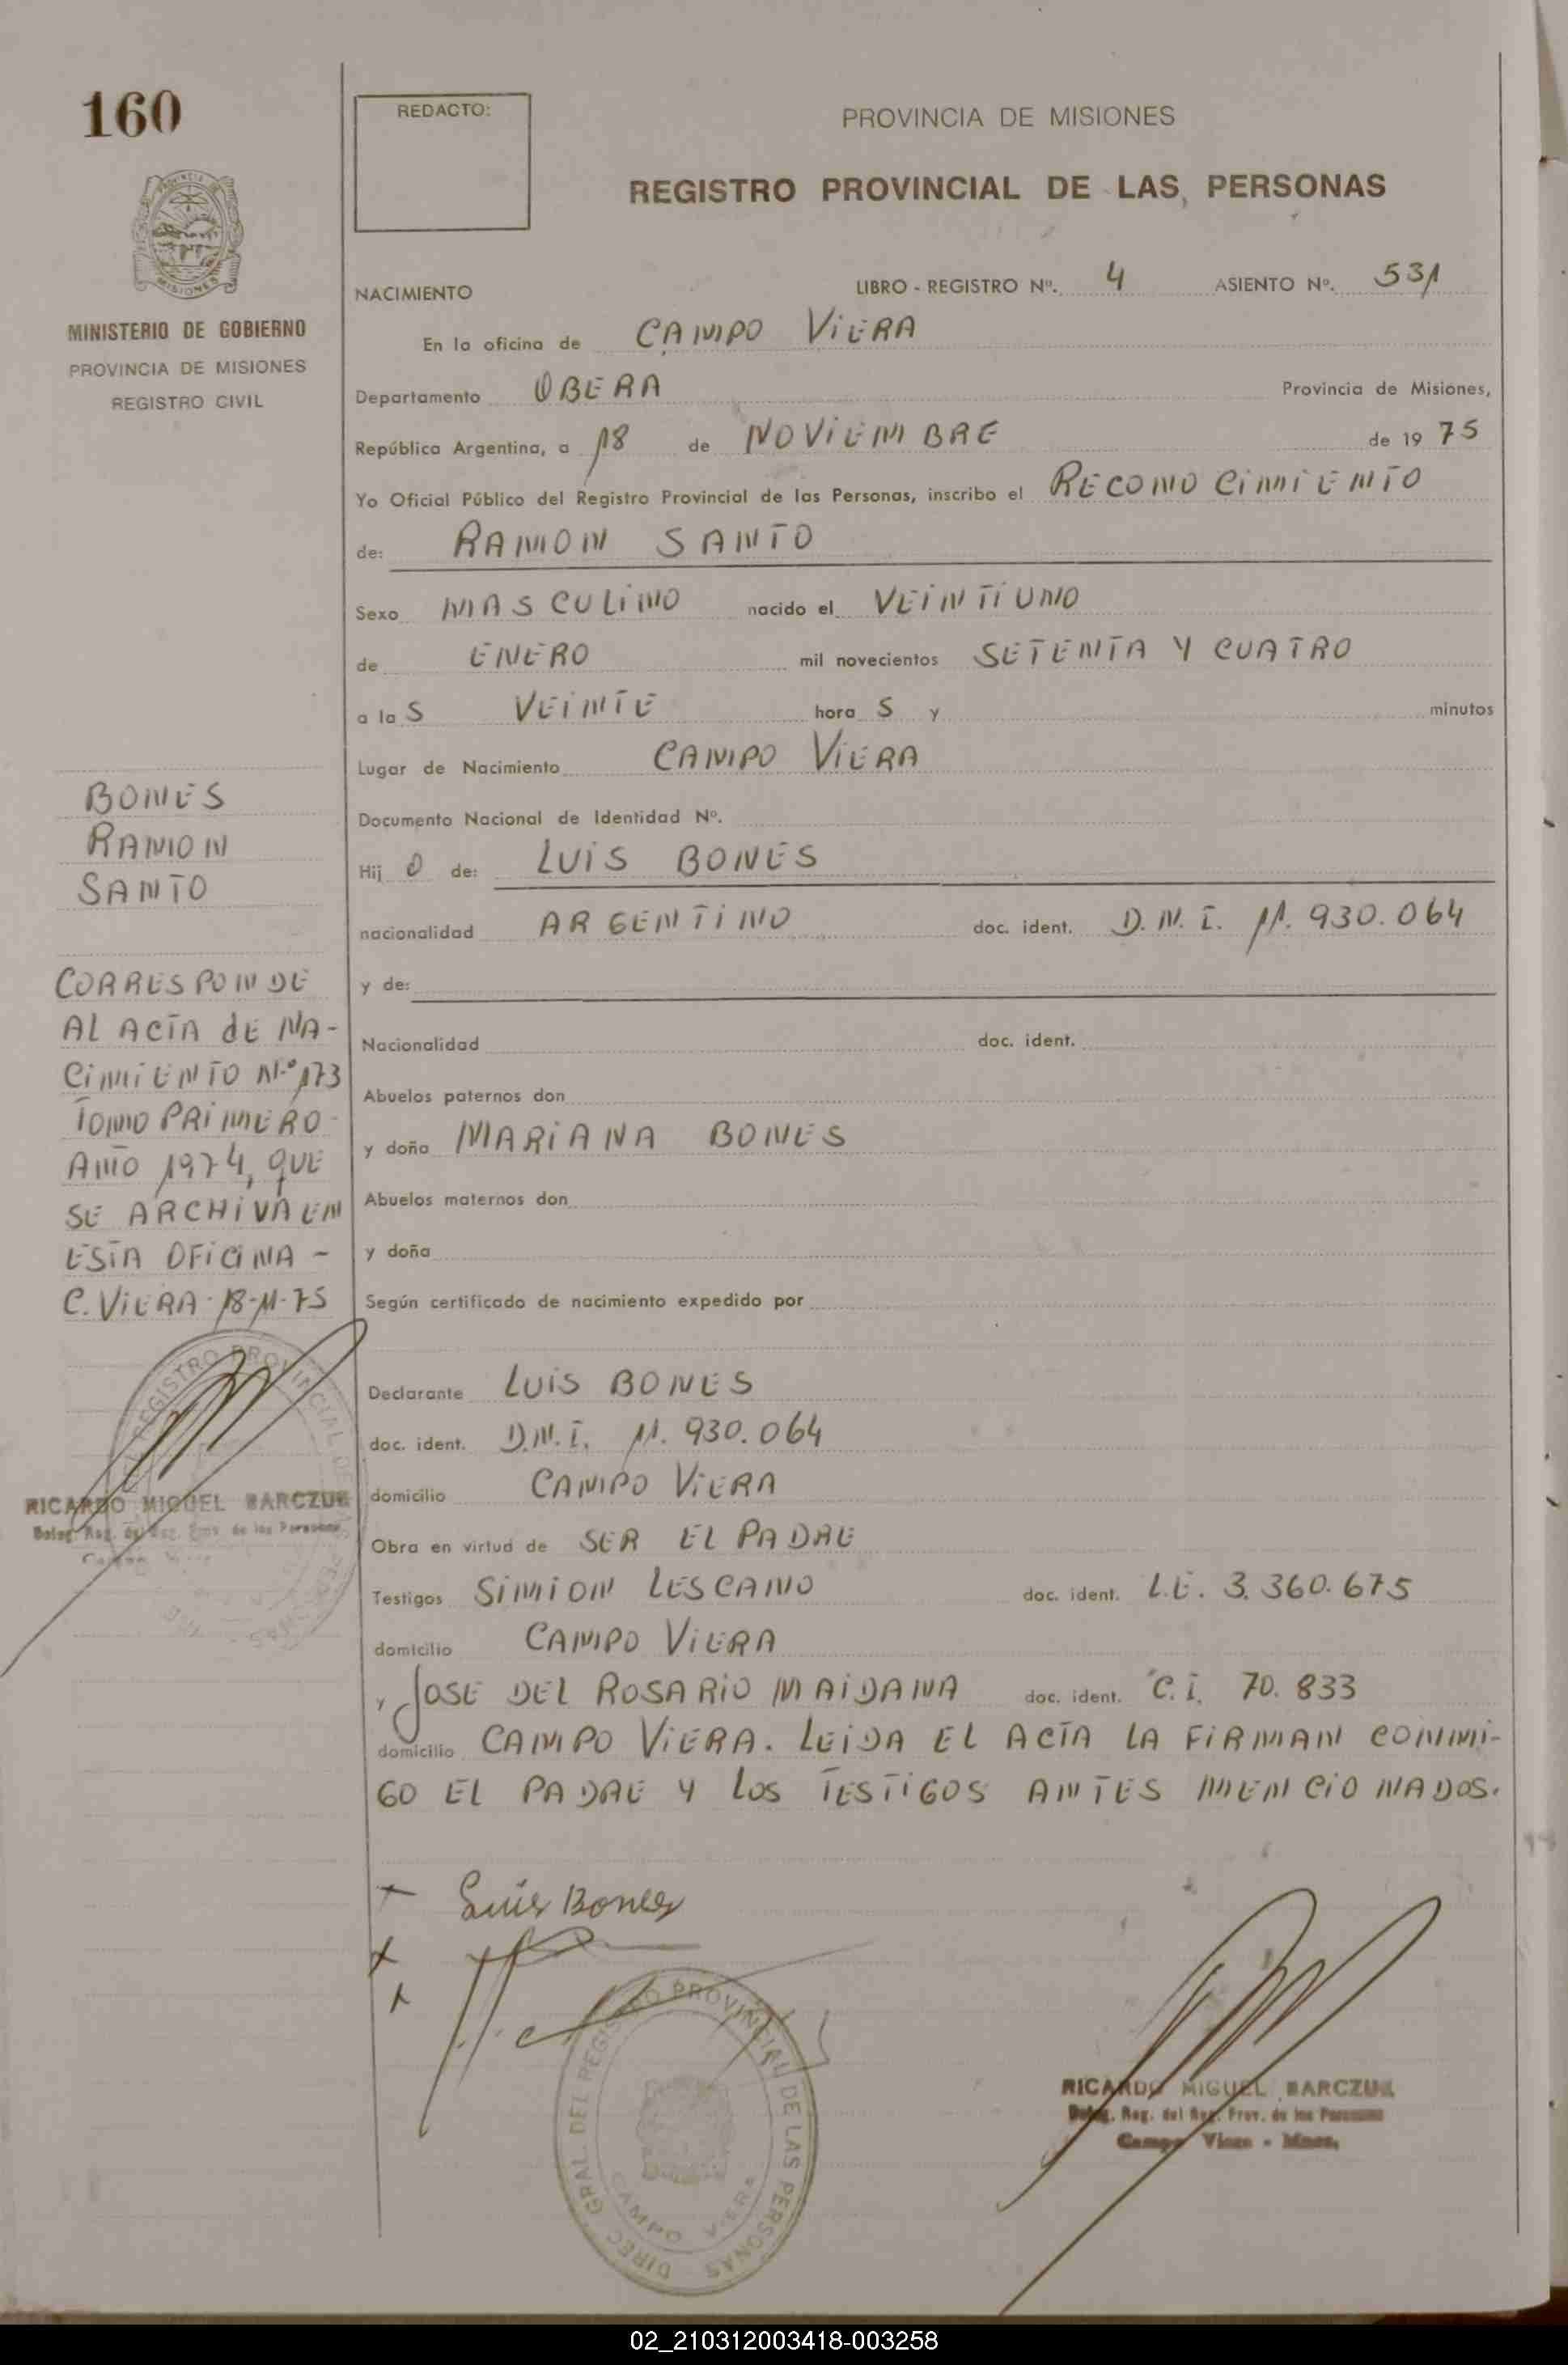 160
REDACTO:
PROVINCIA DE MISIONES
REGISTRO PROVINCIAL DE LAS PERSONAS
PROVINCIA DE
MISIONES
MINISTERIO DE GOBIERNO
PROVINCIA DE MISIONES
REGISTRO CIVIL
NACIMIENTO LIBRO - REGISTRO Nº. 4 ASIENTO Nº. 531
En la oficina de CAMPO ViERA
Departamento OBERA Provincia de Misiones,
República Argentina, a 18 de NOViEMBRE de 19 75
Yo Oficial Público del Registro Provincial de las Personas, inscribo el RECONOCiMiENTO
de: RAMON SANTO
Sexo MASCULiNO nacido el VEiNTiUNO
de ENERO mil novecientos SETENTA Y CUATRO
a la S VEiNTE hora S y minutos
Lugar de Nacimiento CAMPO ViERA
Documento Nacional de Identidad Nº.
Hij O de: LUiS BONES
nacionalidad ARGENTiNO doc. ident. D.N.I. 11.930.064
y de:
Nacionalidad doc. ident.
Abuelos paternos don
y doña MARiANA BONES
Abuelos maternos don
y doña
Según certificado de nacimiento expedido por
Declarante LUiS BONES
doc. ident. D.N.I. 11.930.064
domicilio CAMPO ViERA
Obra en virtud de SER EL PADRE
Testigos SiMiON LESCANO doc. ident. L.E. 3.360.675
domicilio CAMPO ViERA
y JOSE DEL ROSARiO MAiDANA doc. ident. C.I. 70.833
domicilio CAMPO ViERA. LEiDA EL ACTA LA FiRMAN CONMi-
GO EL PADRE Y LOS TESTiGOS ANTES MENCiONADOS.
BONES
RAMON
SANTO
CORRESPONDE
AL ACTA dE NA-
CiMiENTO N.º 173
TOMO PRiMERO
AÑO 1974, QUE
SE ARCHiVA EN
ESTA OFiCiNA -
C. ViERA-18-11-75
REGISTRO PROVINCIAL DE
RICARDO MIGUEL BARCZUK
Deleg. Reg. del Reg. Prov. de las Personas
Campo
Luis Bones
DIREC. GRAL DEL REGISTRO PROVINCIAL DE LAS PERSONAS
CAMPO VIERA
RICARDO MIGUEL BARCZUK
Deleg. Reg. del Reg. Prov. de las Personas
Campo Viera - Mnes.
02_210312003418-003258